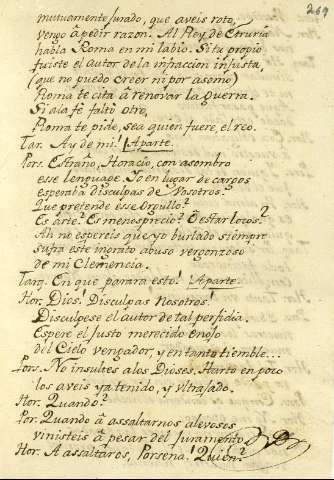 269
mutuamente jurado, que aveis roto,
vengo â pedir razon. Al Rey de Etruria
habla Roma en mi labio. Si tu propio
fuiste el autor de la infraccion injusta,
(que no puedo creer ni por asomo)
Roma te cita â renovar la guerra.
Si a la fé faltò otro,
Roma te pide, sea quien fuere, el reo.
Tar. Ay de mi! Aparte.
Por. Estraño, Horacio, con asombro
esse lenguage. Yo en lugar de cargos
esperaba disculpas de Vosotros.
Que pretende esse Orgullo?
Es arte? Es menosprecio? O estar locos?
Ah! no espereis que yo burlado siempre
sufra este ingrato abuso vergonzoso
de mi Clemencia.
Tarq. En que parara esto! Aparte
Hor. Dios! Disculpas Nosotros!
Disculpese el autor de tal perfidia.
Espere el justo merecido enojo
del Cielo vengador, y en tanto tiemble...
Pors. No insultes a los Dioses. Harto en poco
los aveis ya tenido, y ultrajado.
Hor. Quando?
Por. Quando â assaltarnos alevosos
vinisteis â pesar del juramento
Hor. A assaltaros, Porsena! Quien?